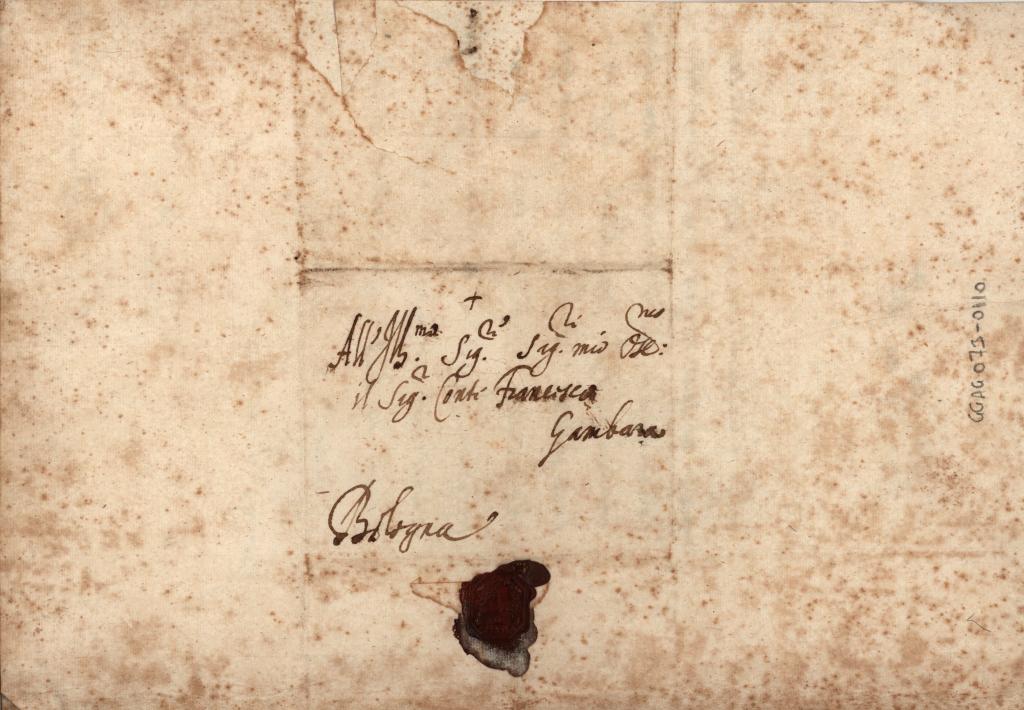 +
All' Ill.ma Sig.ri Sig.ri mio Oss.:
il Sig.r Conte Francesco
Gambara
Bologna
GGAG 073-0110